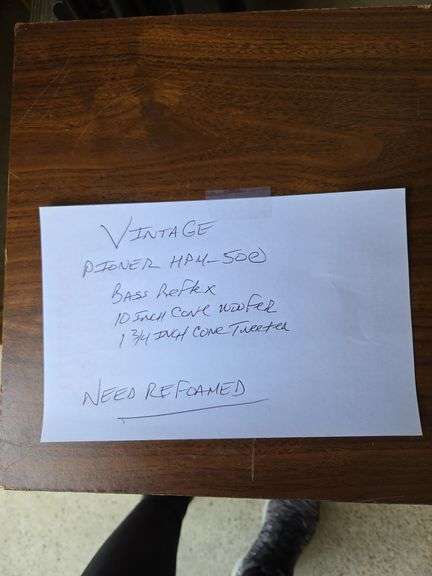 VINTAGE
PIONER HPM-500
BASS Reflex
10 INCH CONE WOOFER
1 3/4 INCH CONE Tweeter
NEED REFOAMED